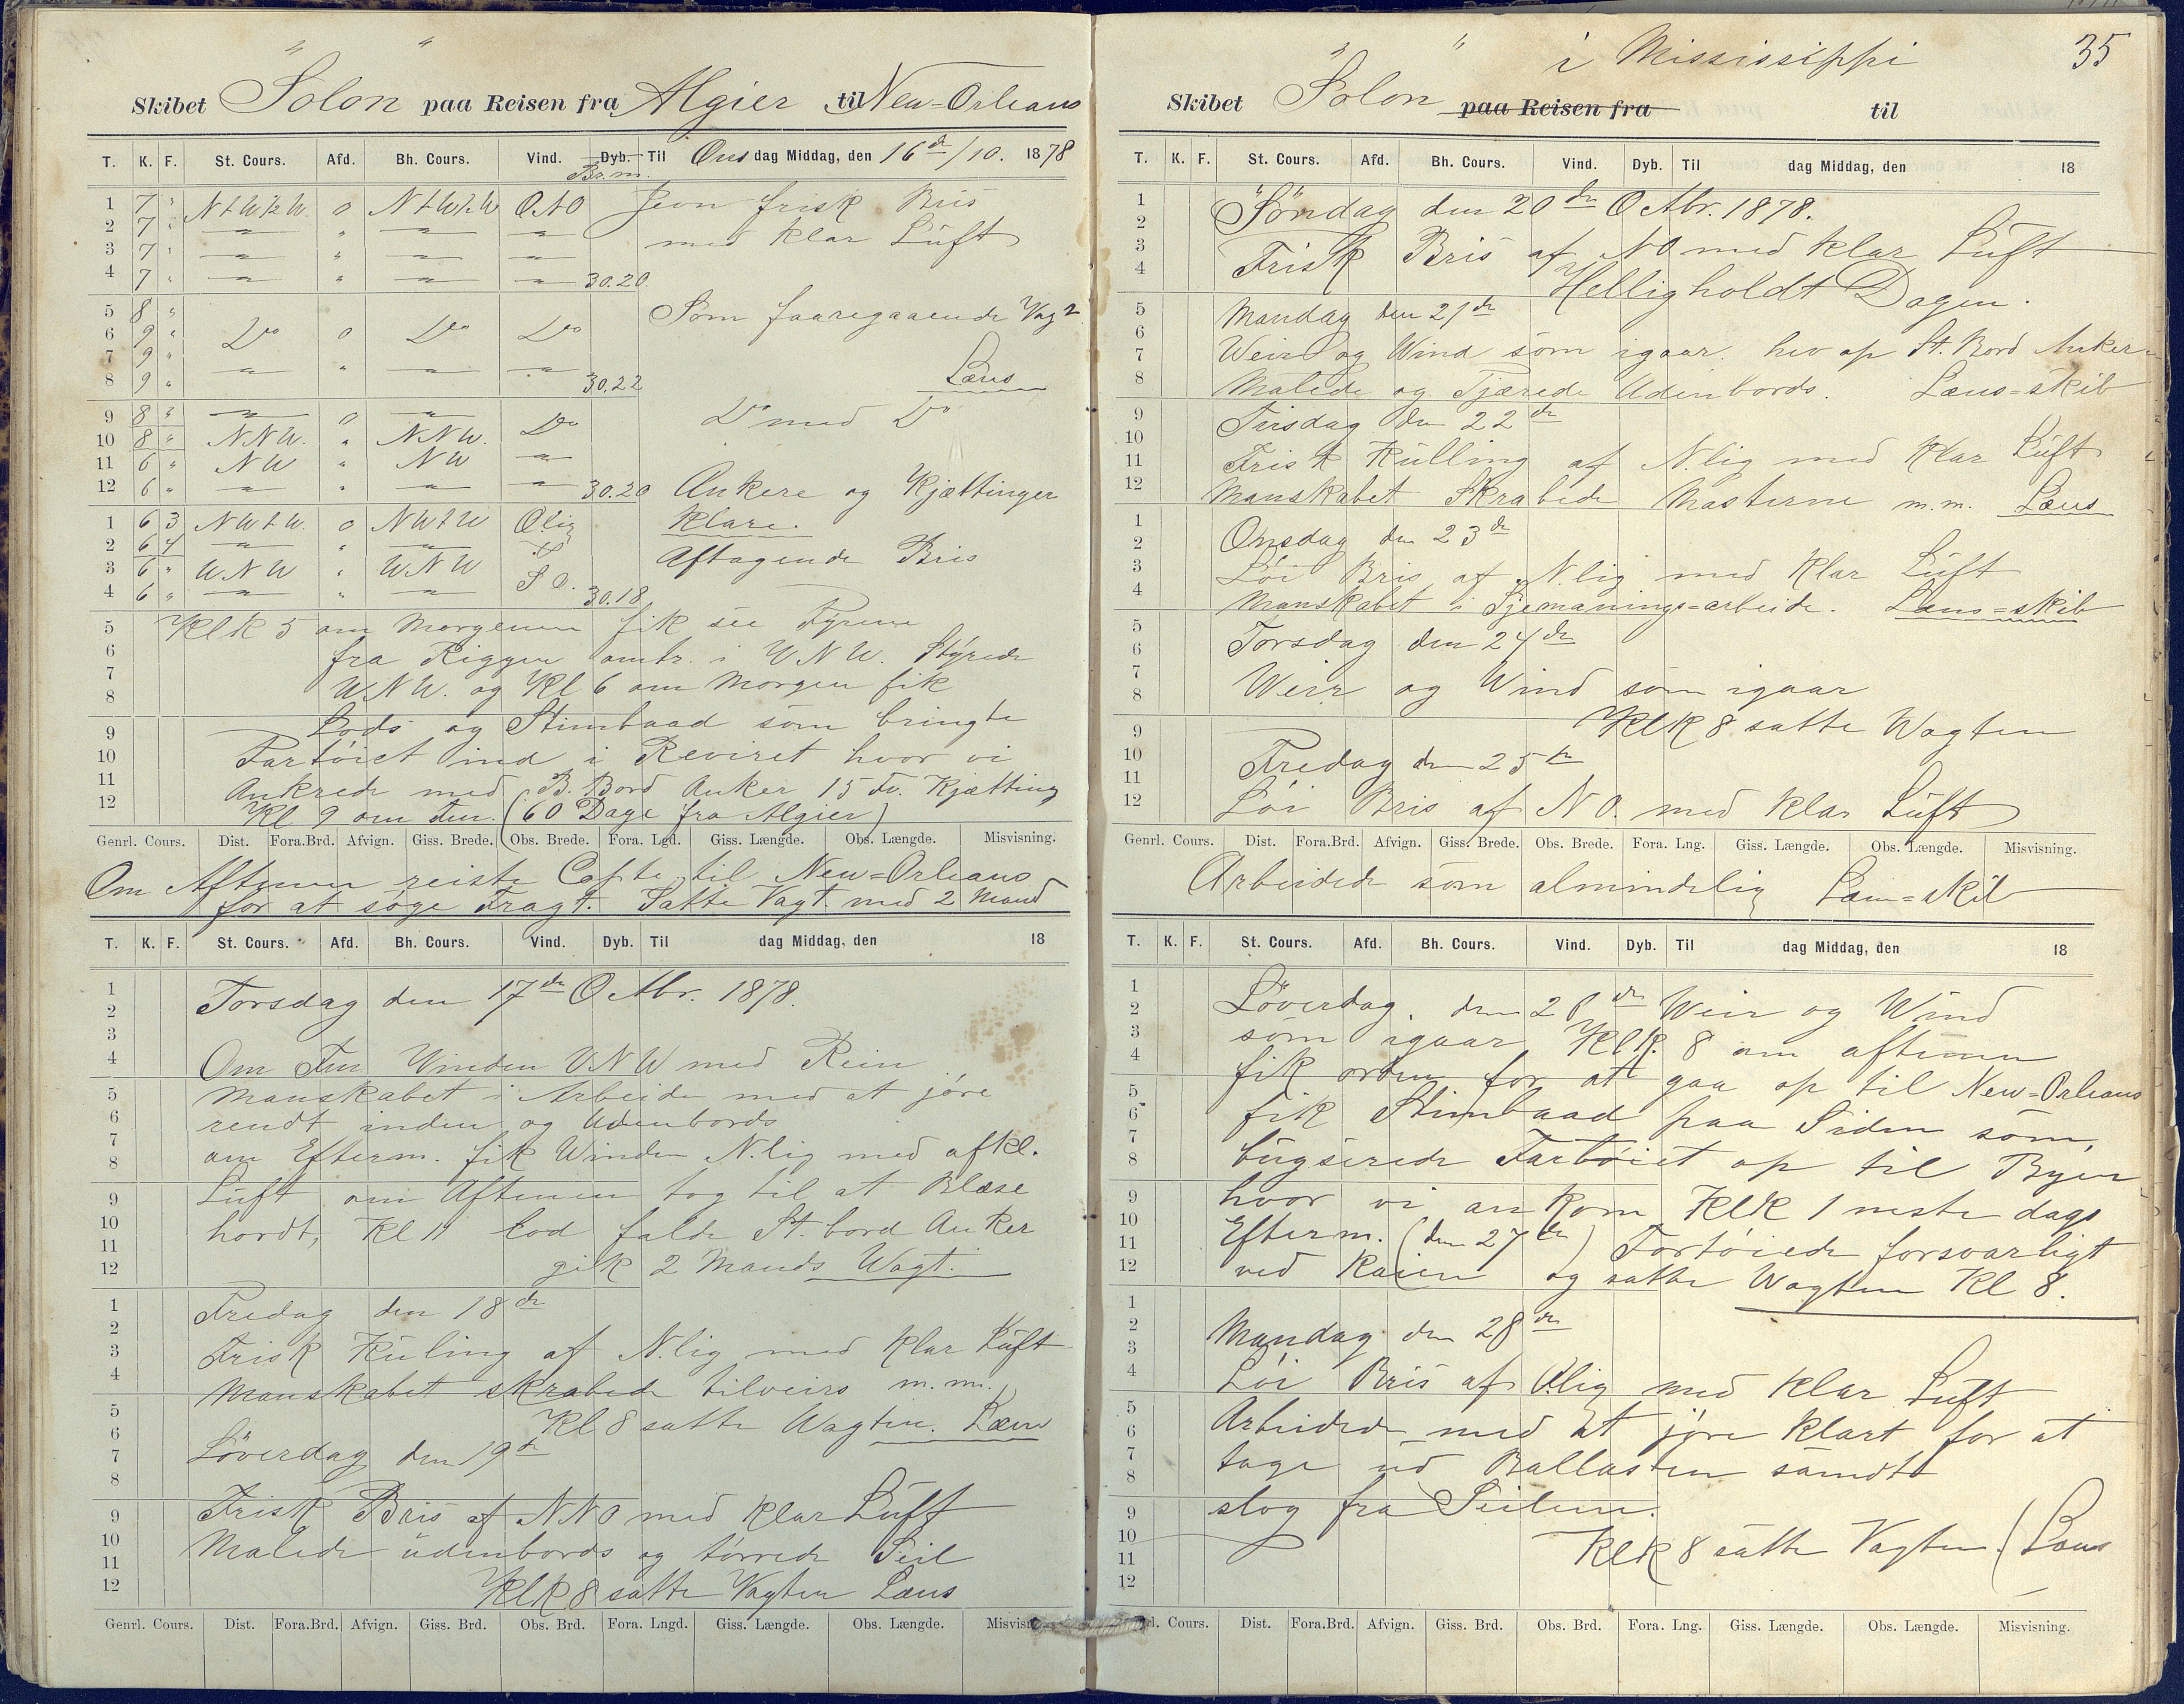 Skibet "Solon" paa Reisen fra Algier til New-Orleans
T. K. F. St. Cours. Afd. Bh. Cours. Vind. Dyb. Til Onsdag Middag, den 16de/10. 1878
Br. m.
1 7 " N t W ½ W. 0 N t W ½ W ONO Jevn frisk Bris
2 7 " — " — — med klar Luft
3 7 " — " — —
4 7 " — " — — 30.20
5 8 " Som foaregaaende Vagt
6 9 " Do 0 Do Do
7 9 " — " — — Læns
8 9 " 30.22
9 8 " — 0 — Do Do med Do
10 8 " NNW. " NNW.
11 6 " NW " NW —
12 6 " — " — — 30.20 Ankere og Kjættinger
1 6 3 NW t W. 0 NW t W Olig klare.
2 6 4 — " —
3 6 " WNW " WNW SO. Aftagende Bris
4 6 " — " — 30.18
5 Klk 5 om Morgenen fik see Fyrene
6 fra Riggen omtr. i WNW. Styrede
7 WNW. og Kl 6 om Morgen fik
8
9 Lods og Stimbaad som bringte
10 Fartöiet ind i Reviret hvor vi
11 Ankrede med B. Bord Anker 15 fv. Kjætting
12 Kl 9 om Fm. (60 Dage fra Algier)
Genrl. Cours. Dist. Fora.Brd. Afvign. Giss. Brede. Obs. Brede. Fora. Lgd. Giss. Længde. Obs. Længde. Misvisning.
Om Aftenen reiste Capte til New=Orleans
for at söge Fragt. Satte Vagt med 2 Mand
T. K. F. St. Cours. Afd. Bh. Cours. Vind. Dyb. Til dag Middag, den 18
1
2 Torsdag den 17de Octbr. 1878.
3
4 Om Fm Vinden VNW med Rein
5 Manskabet i Arbeide med at jöre
6 rendt inden og Udenbords
7 om Efterm. fik Winden N.lig med afkl.
8
9 Luft om Aftenen tog til at Blæse
10 hordt, Kl 11 lod falde St. bord Anker
11
12 gik 2 Mands Wagt.
1 Fredag den 18de
2
3 Frisk Kuling af N.lig med Klar Luft
4 Manskabet skrabede tilveirs m.m.
5
6 Kl 8 satte Wagten. Læns
7 Löverdag den 19de
8
9 Frisk Bris af NNO med klar Luft
10 Malede udenbords og törrede Seil
11
12 Klk 8 satte Vagten Læns
Genrl. Cours. Dist. Fora.Brd. Afvign. Giss. Brd. Obs. Brd. Fora. Lngd. Giss. Længde. Obs. Længde. Misvisn
35
Skibet "Solon" paa Reisen fra i Mississippi til
T. K. F. St. Cours. Afd. Bh. Cours. Vind. Dyb. Til dag Middag, den 18
1 Söndag den 20de Octbr. 1878.
2
3 Frisk Bris af NO med klar Luft
4 Helligholdt Dagen.
5 Mandag den 21de
6
7 Weir og Wind som igaar. hev op St. Bord Anker
8 Malede og Tjærede Udenbords. Læns=skib
9 Tirsdag den 22de
10
11 Frisk Kulling af N.lig med klar Luft
12 Manskabet Skrabede Masterne m.m. Læns
1
2 Onsdag den 23de
3 Löi Bris af N.lig med klar Luft
4 Manskabet i Sjemanings=arbeide. Læns=skib
5
6 Torsdag den 24de
7
8 Weir og Wind som igaar
9 Klk 8 satte Wagten
10 Fredag den 25de
11
12 Löi Bris af NO. med klar Luft
Genrl. Cours. Dist. Fora.Brd. Afvign. Giss. Brede. Obs. Brede. Fora. Lng. Giss. Længde. Obs. Længde. Misvisning.
Arbeidede som almindelig Læns=skib
T. K. F. St. Cours. Afd. Bh. Cours. Vind. Dyb. Til dag Middag, den 18
1
2 Löverdag. den 26de Weir og Wind
3 som igaar Klk. 8 om aftenen
4 fik orden for at gaa op til New=Orleans
5
6 fik Stimbaad paa Siden som
7
8 bugserede Fartöiet op til Byen
9 hvor vi ankom Klk 1 neste dags
10
11 Efterm. (den 27de) Fortöiede forsvarligt
12 ved Kaien og satte Wagten Kl 8.
1
2 Mandag den 28de
3
4 Löi Bris af Olig med klar Luft
5
6 Arbeidede med at jöre klart for at
7 tage ud Ballasten samdt
8
9 slog fra Seilene.
10
11 Klk 8 satte Vagten. Læns
12
rl. Cours. Dist. Fora.Brd. Afvign. Giss. Brd. Obs. Brd. Fora. Lng. Giss. Længde. Obs. Længde. Misvisning.